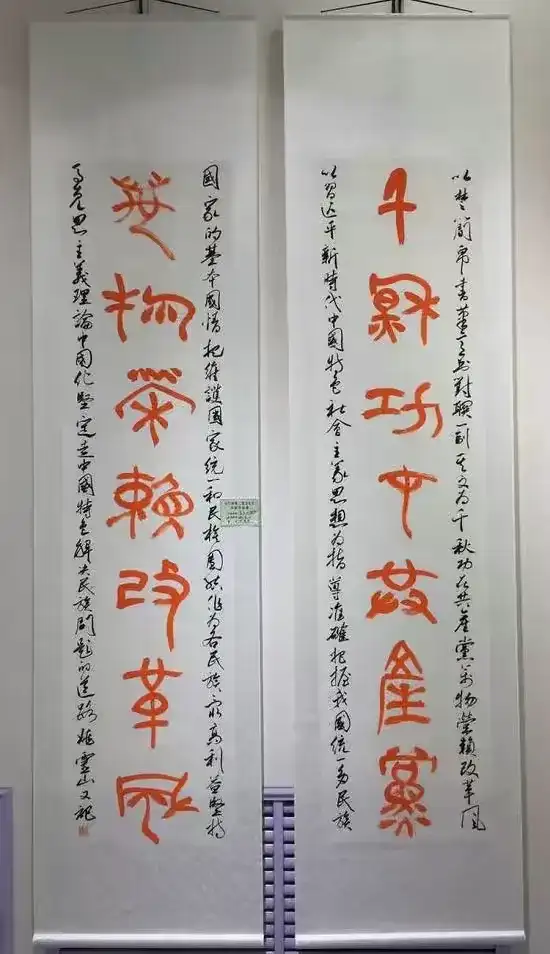 以楚簡帛書筆意書對聯一副其文為千秋功在共產黨萬物榮賴改革風
千秋功中共產黨
以習近平新時代中國特色社會主義思想為指導准確把握我國統一多民族
國家的基本國情把維護國家統一和民族團結作為各民族最高利益堅持
萬物榮賴改革風
馬克思主義理論中國化堅定走中國特色解決民族問題的道路姚山又記